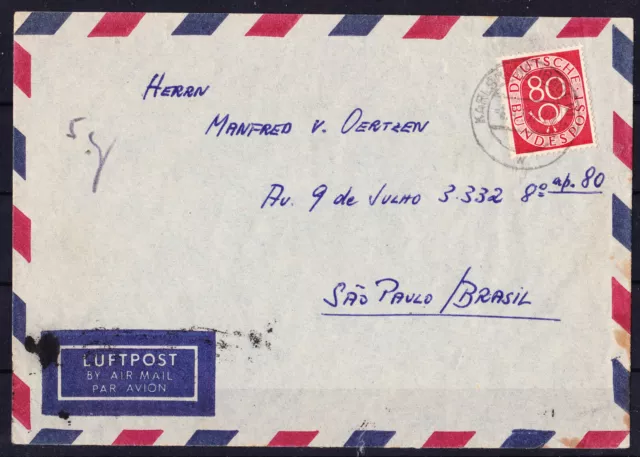 DEUTSCHE
80
BUNDESPOST
HERRN
MANFRED V. OERTZEN
AV. 9 de JULHO 3.332 8º ap. 80
SÃO PAULO / BRASIL
LUFTPOST
BY AIR MAIL
PAR AVION